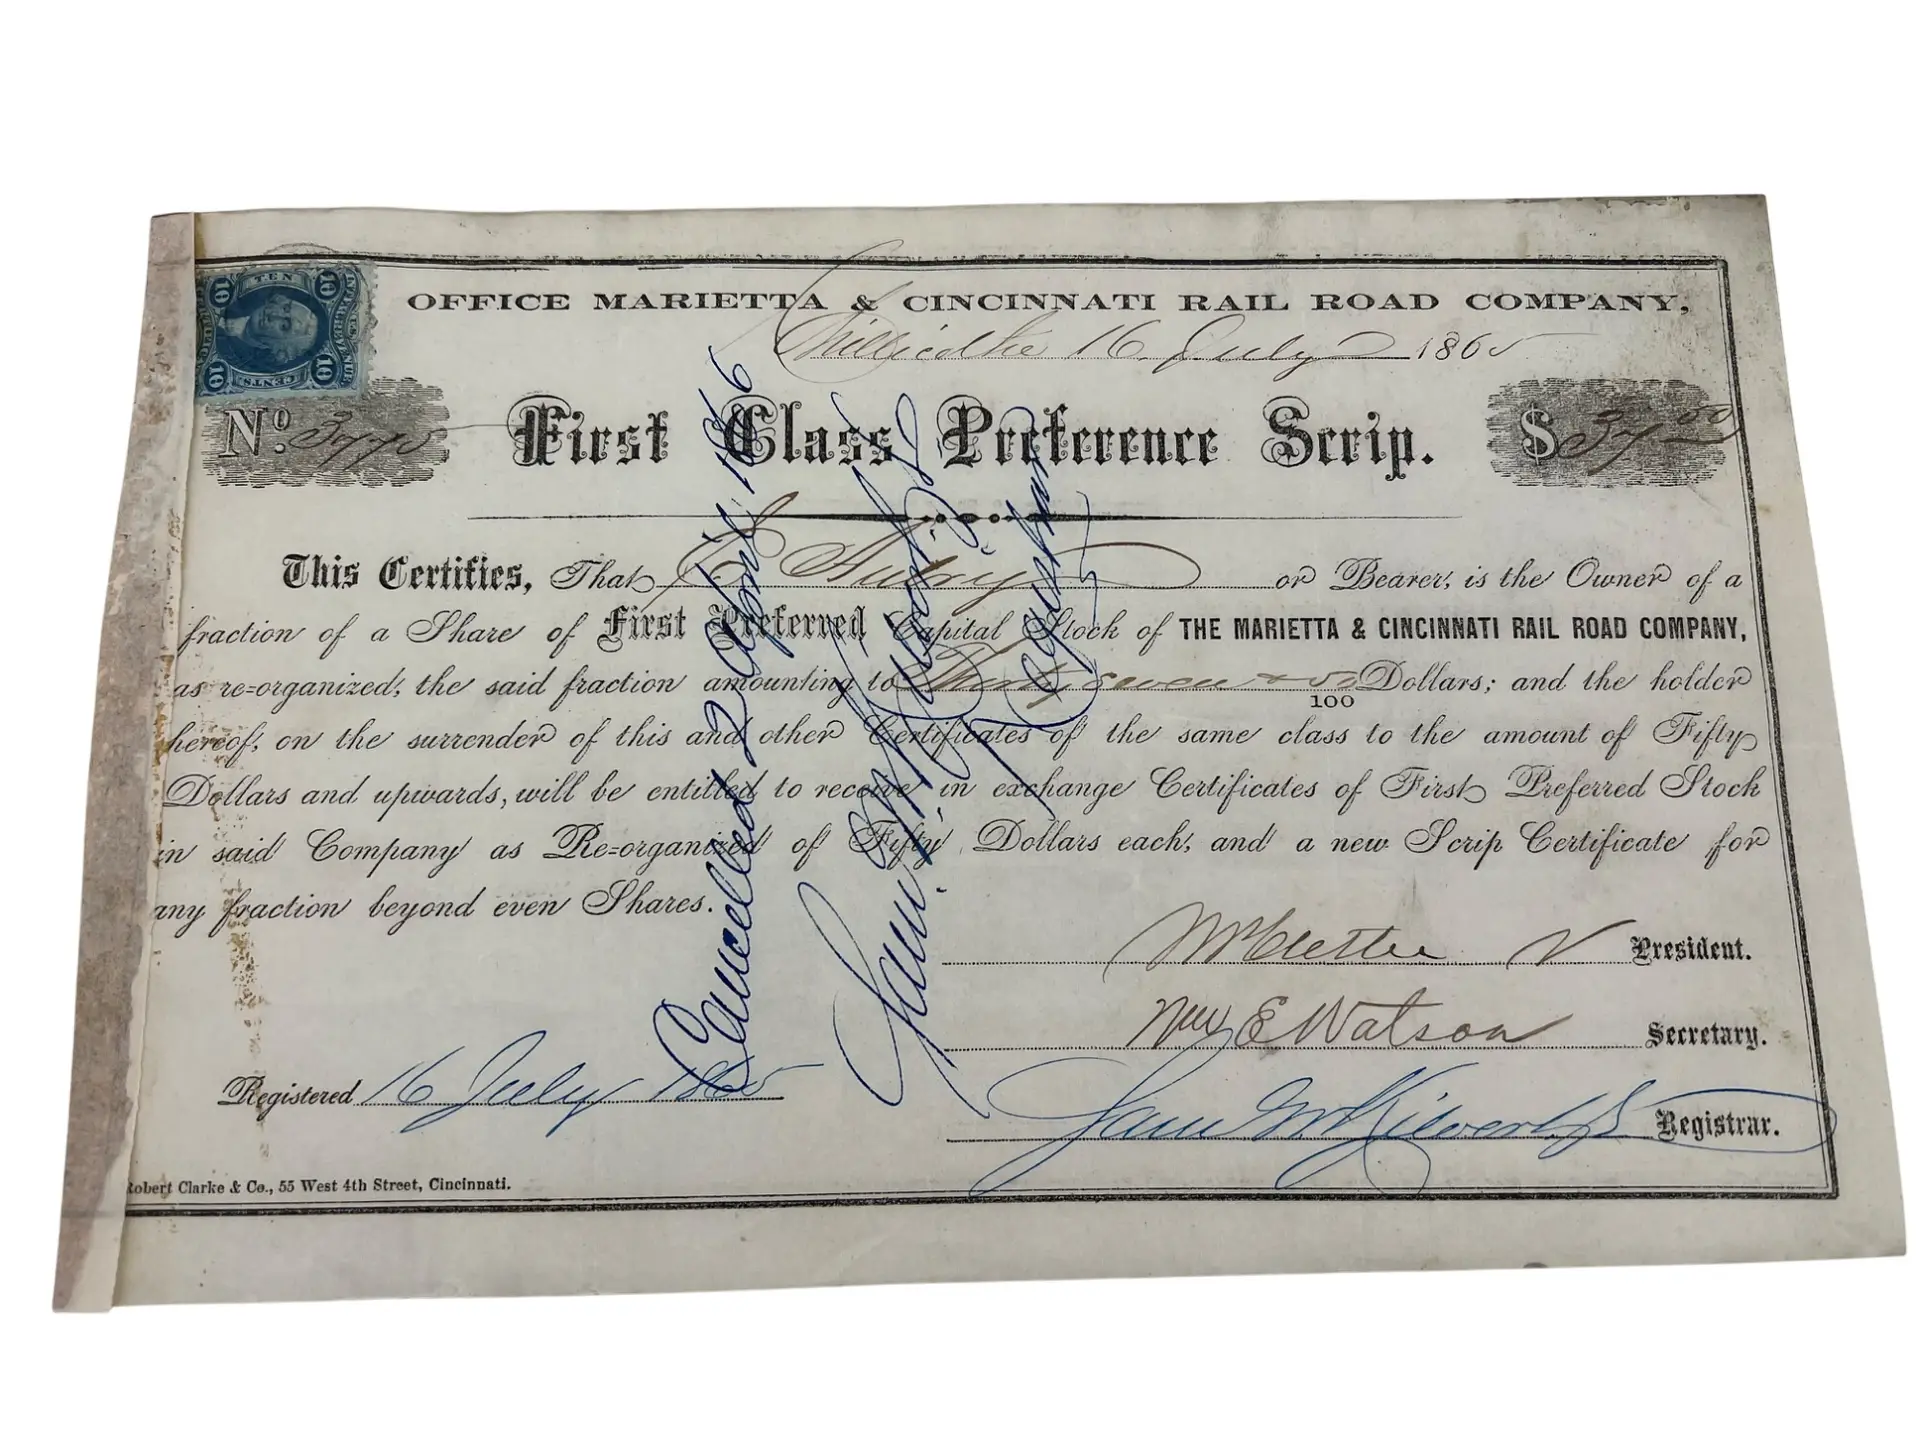 TEN
10 10
U.S. INTER. REVENUE
10 10
CENTS.
OFFICE MARIETTA & CINCINNATI RAIL ROAD COMPANY,
Chillicothe 16 July 1865
No. 3775 First Class Preference Scrip. $37.50
This Certifies, That Aubry or Bearer, is the Owner of a
fraction of a Share of First Preferred Capital Stock of THE MARIETTA & CINCINNATI RAIL ROAD COMPANY,
as re-organized, the said fraction amounting to Thirty seven & 50/100 Dollars; and the holder
hereof, on the surrender of this and other Certificates of the same class to the amount of Fifty
Dollars and upwards, will be entitled to receive in exchange Certificates of First Preferred Stock
in said Company as Re-organized of Fifty Dollars each, and a new Scrip Certificate for
any fraction beyond even Shares.
President.
Wm E Watson Secretary.
Registered 16 July 1865
Registrar.
Robert Clarke & Co., 55 West 4th Street, Cincinnati.
Cancelled 2 April 1866
Registrar